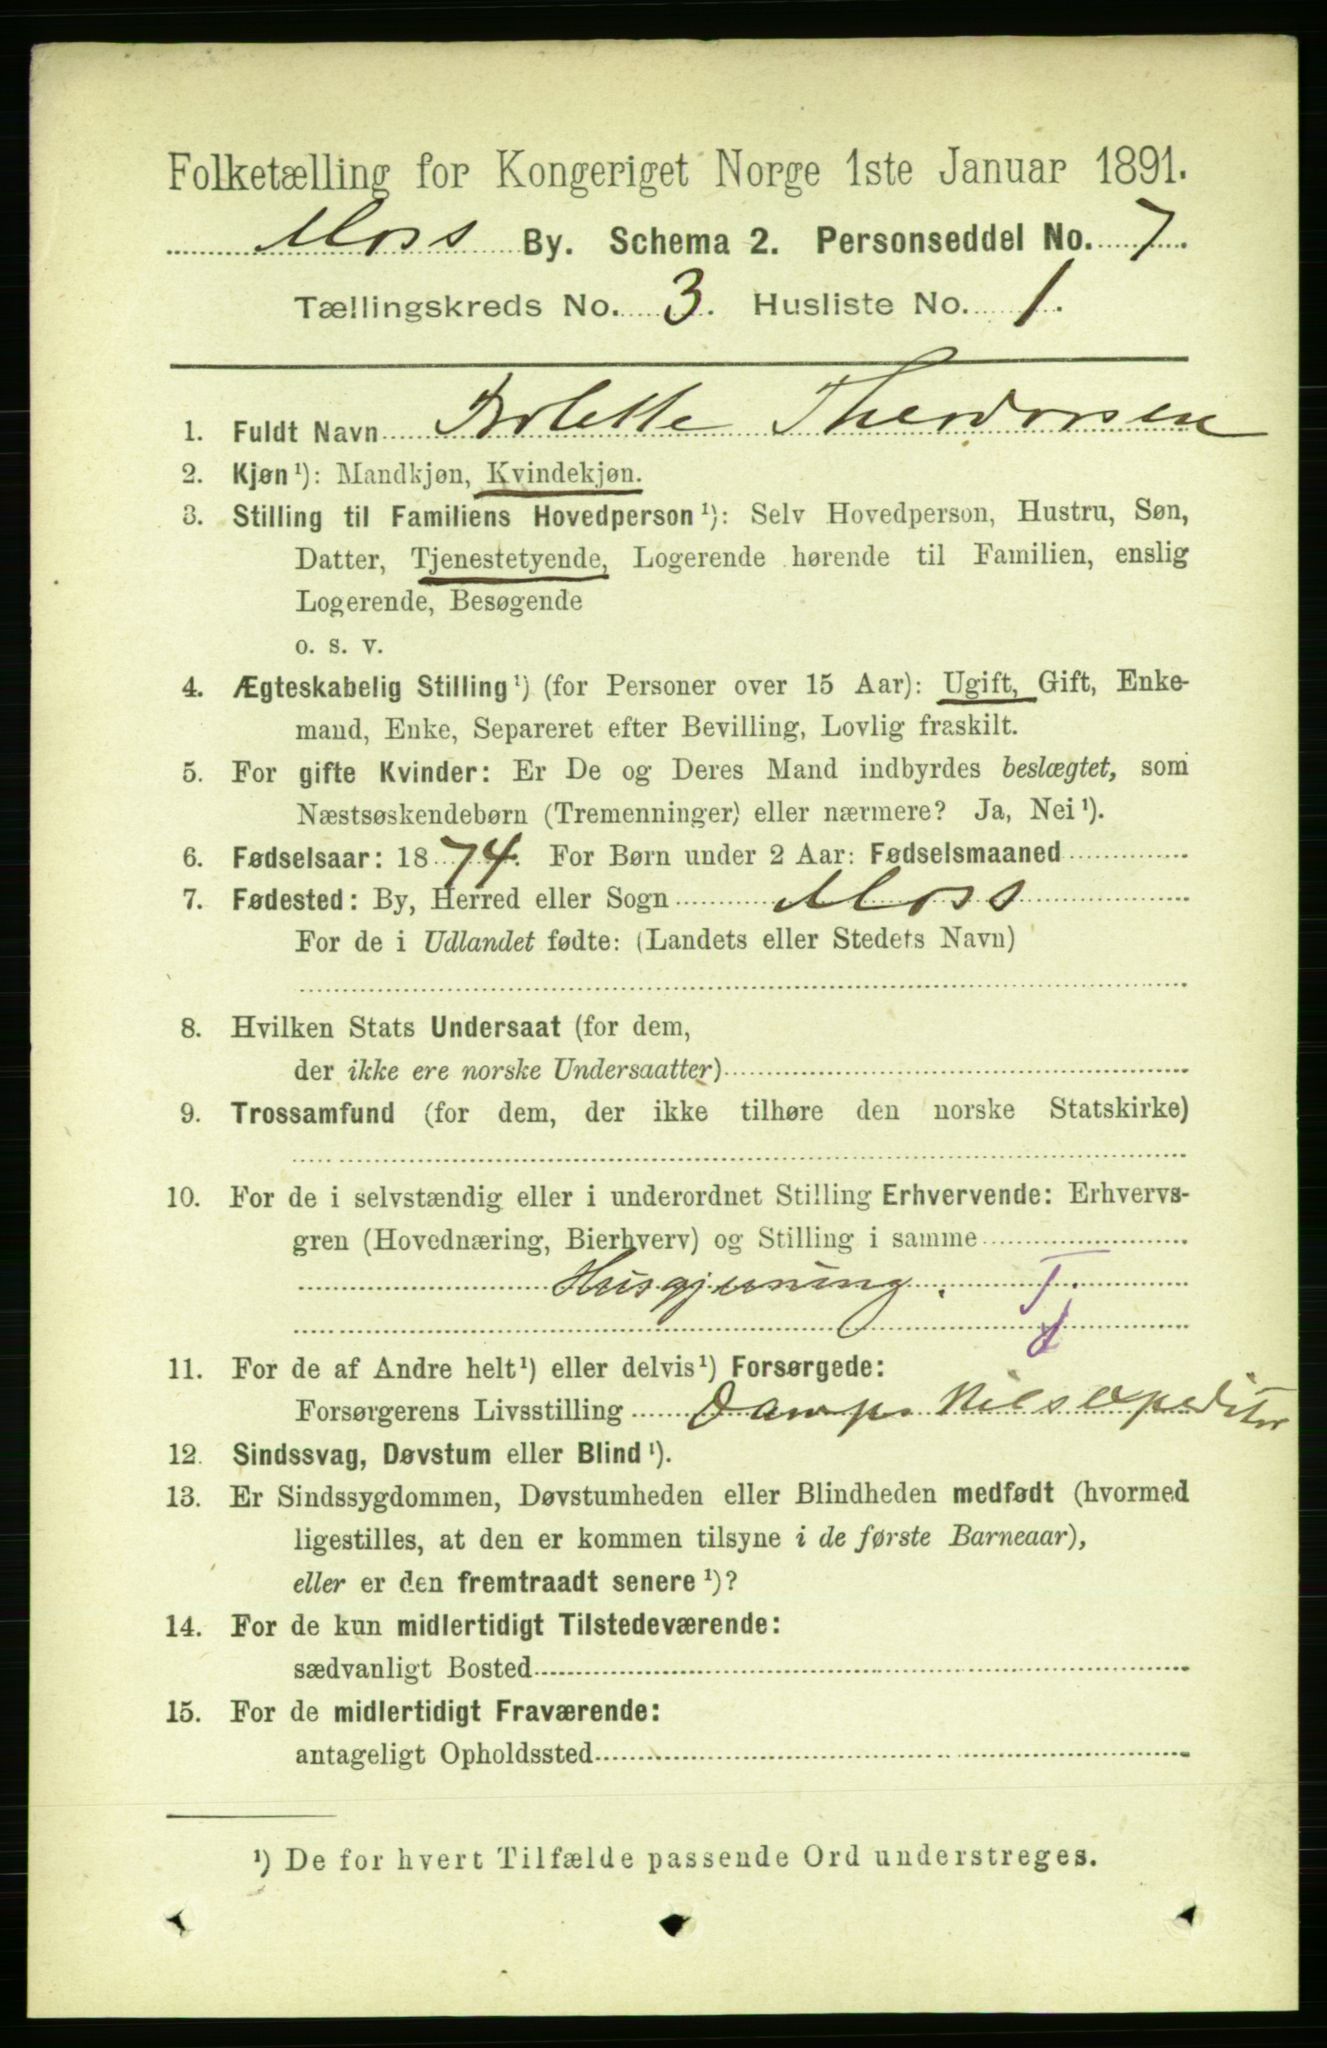 Folketælling for Kongeriget Norge 1ste Januar 1891.
Moss By. Schema 2. Personseddel No. 7.
Tællingskreds No. 3. Husliste No. 1.
1. Fuldt Navn Bolette Theodorsen
2. Kjøn¹): Mandkjøn, Kvindekjøn.
3. Stilling til Familiens Hovedperson¹): Selv Hovedperson, Hustru, Søn,
Datter, Tjenestetyende, Logerende hørende til Familien, enslig
Logerende, Besøgende
o. s. v.
4. Ægteskabelig Stilling¹) (for Personer over 15 Aar): Ugift, Gift, Enke-
mand, Enke, Separeret efter Bevilling, Lovlig fraskilt.
5. For gifte Kvinder: Er De og Deres Mand indbyrdes beslægtet, som
Næstsøskendebørn (Tremenninger) eller nærmere? Ja, Nei¹).
6. Fødselsaar: 1874. For Børn under 2 Aar: Fødselsmaaned
7. Fødested: By, Herred eller Sogn Moss
For de i Udlandet fødte: (Landets eller Stedets Navn)
8. Hvilken Stats Undersaat (for dem,
der ikke ere norske Undersaatter)
9. Trossamfund (for dem, der ikke tilhøre den norske Statskirke)
10. For de i selvstændig eller i underordnet Stilling Erhvervende: Erhvervs-
gren (Hovednæring, Bierhverv) og Stilling i samme
Husgjerning. T.
11. For de af Andre helt¹) eller delvis¹) Forsørgede:
Forsørgerens Livsstilling Damps
12. Sindssvag, Døvstum eller Blind¹).
13. Er Sindssygdommen, Døvstumheden eller Blindheden medfødt (hvormed
ligestilles, at den er kommen tilsyne i de første Barneaar),
eller er den fremtraadt senere¹)?
14. For de kun midlertidigt Tilstedeværende:
sædvanligt Bosted
15. For de midlertidigt Fraværende:
antageligt Opholdssted
¹) De for hvert Tilfælde passende Ord understreges.